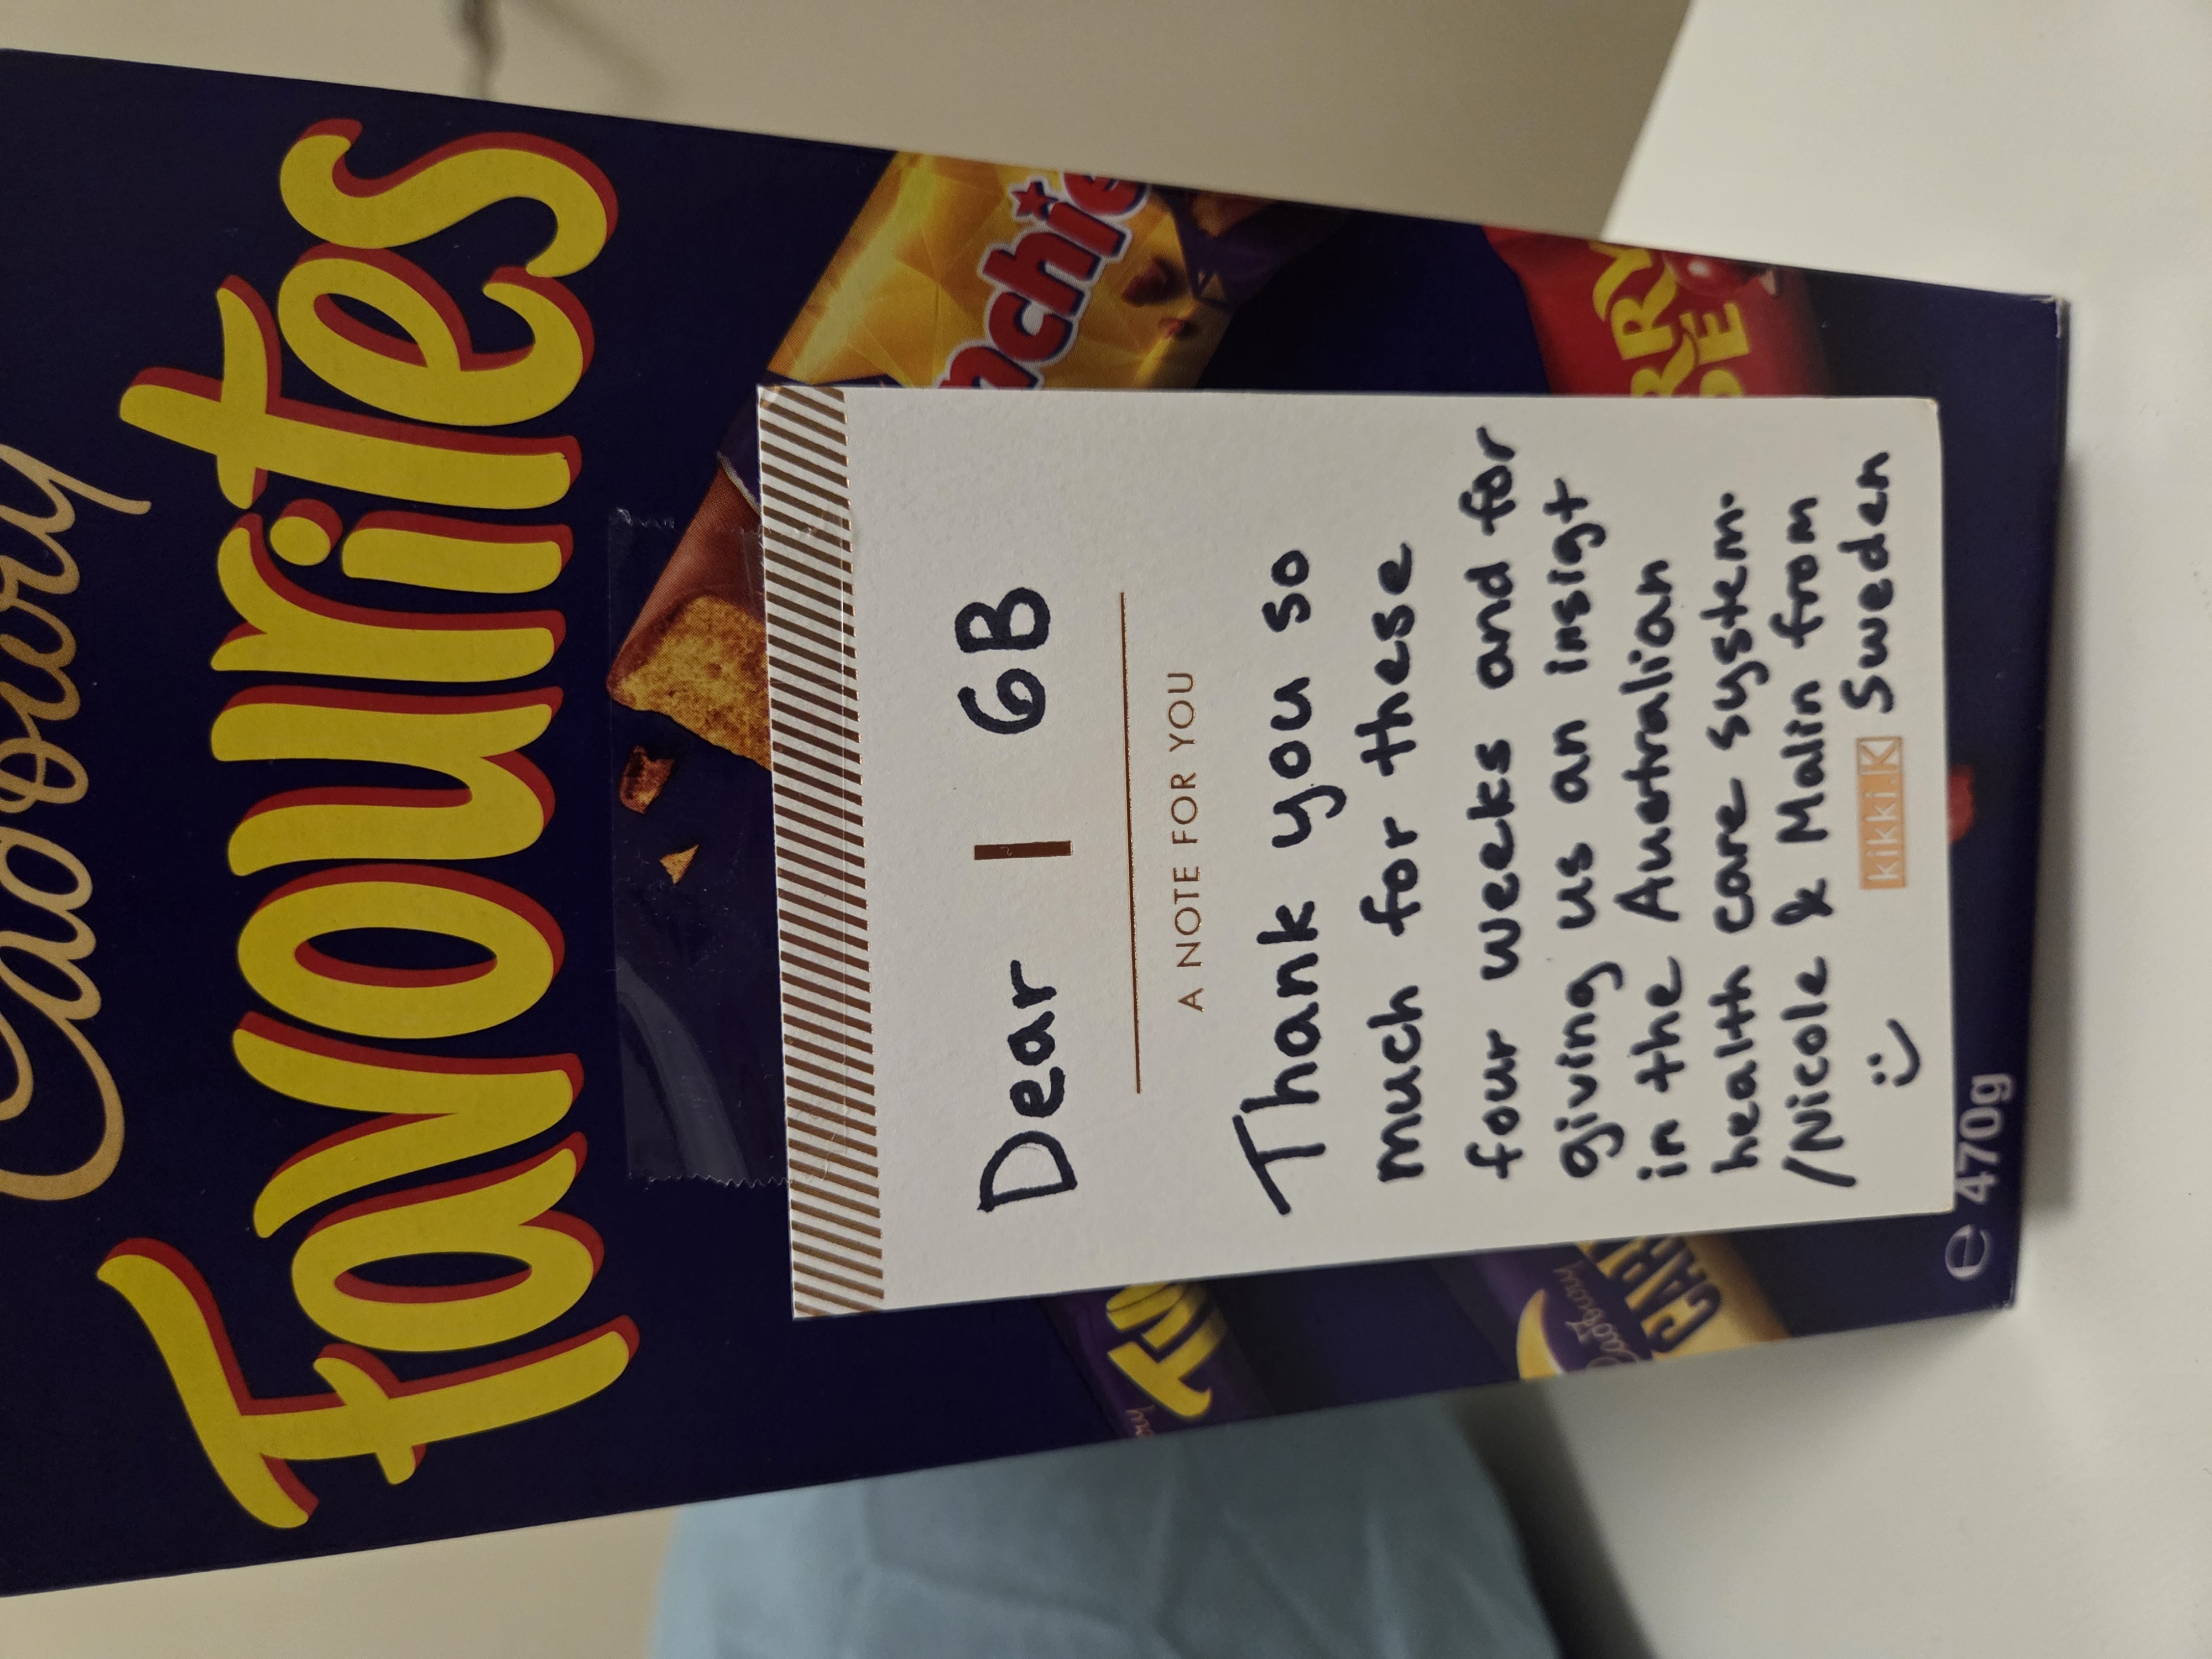 Cadbury
Favourites
nchie
RRY
PE
Dear | 6B
A NOTE FOR YOU
Thank you so
much for these
four weeks and for
giving us an insigt
in the Australian
health care system.
/Nicole & Malin from
:) kikki.K Sweden
Cadbury
e 470g